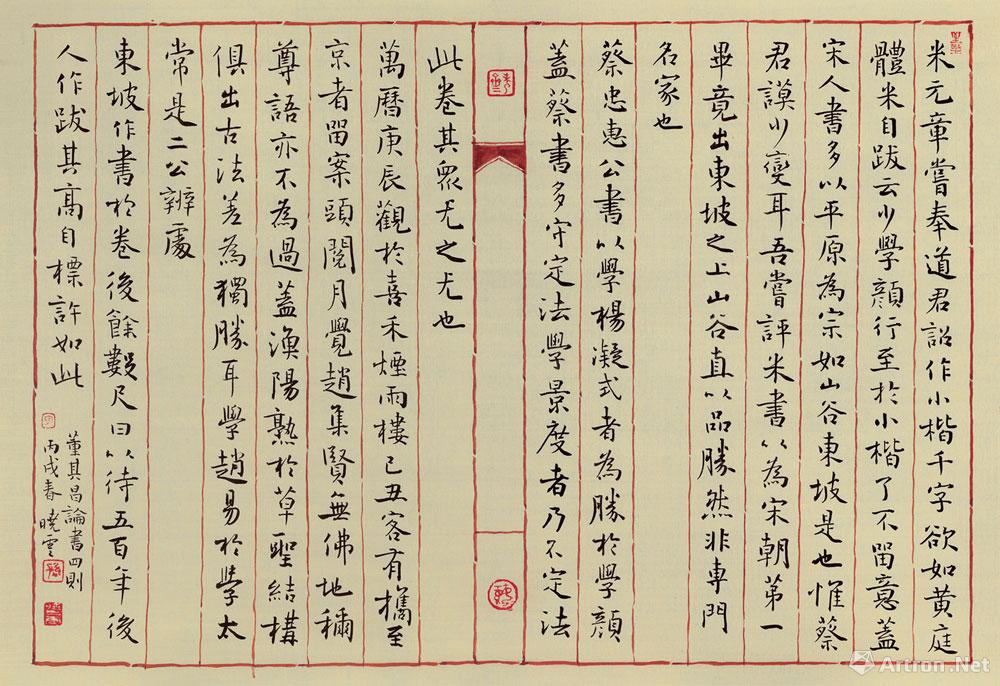 米元章嘗奉道君詔作小楷千字欲如黃庭
體米自跋云少學顏行至於小楷了不留意蓋
宋人書多以平原為宗如山谷東坡是也惟蔡
君謨少變耳吾嘗評米書以為宋朝第一
畢竟出東坡之上山谷直以品勝然非專門
名家也
蔡忠惠公書以學楊凝式者為勝於學顏
蓋蔡書多守定法學景度者乃不定法
此卷其眾尤之尤也
萬曆庚辰觀於喜禾煙雨樓己丑客有攜至
京者留案頭閱月覺趙集賢無佛地稱
尊語亦不為過蓋漁陽熟於草聖結構
俱出古法差為獨勝耳學趙易於學太
常是二公辨處
東坡作書於卷後餘數尺曰以待五百年後
人作跋其高自標許如此
董其昌論書四則
丙戌春曉雲
Artron.Net